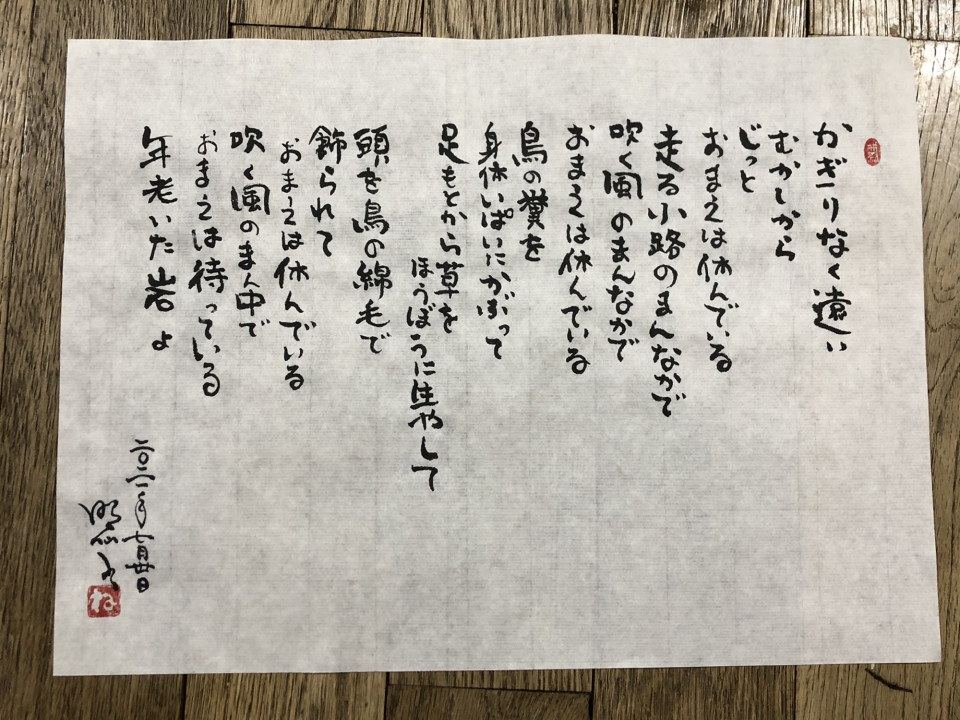 かぎりなく遠い
むかしから
じっと
おまえは休んでいる
走る小路のまんなかで
吹く風のまんなかで
おまえは休んでいる
鳥の糞を
身体いぱいにかぶって
足もとから草を
ほうぼうに生やして
頭を鳥の綿毛で
飾られて
おまえは休んでいる
吹く風のまん中で
おまえは待っている
年老いた岩よ
二〇二一年七月廿日
ね